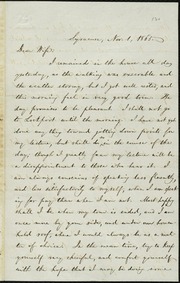 Syracuse, Nov. 1, 1865.
Dear Wife:
I remained in the house all day
yesterday, as the walking was execrable and
the weather stormy, but I got well rested, and
this morning feel in very good trim. The
day promises to be pleasant. I shall not go
to Lockport until the morning. I have not got
done any thing toward getting down points for
my lecture, but shall begin the course of the
day, though I greatly fear my lecture will be
a disappointment to those who hear it. I am
always conscious of speaking less fluently,
and less satisfactorily to myself, when I am speak-
ing for pay than when I am not. Most happy
shall I be when my tour is ended, and I am
once more by your side, and under our own house-
hold roof, where I would always be as a mat-
ter of choice. In the mean time, try to keep
yourself very cheerful, and comfort yourself
with the hope that I may be doing some